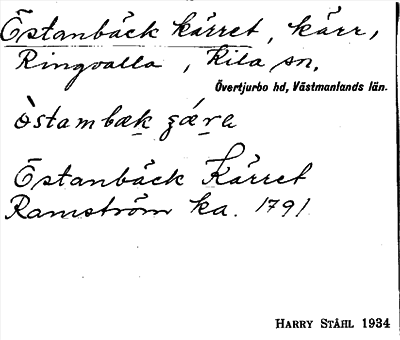 Östanbäck kärret, kärr,
Ringvalla, Kila sn,
Övertjurbo hd, Västmanlands län.
Östanbäck Kärret
Ramström ka. 1791
HARRY STÅHL 1934